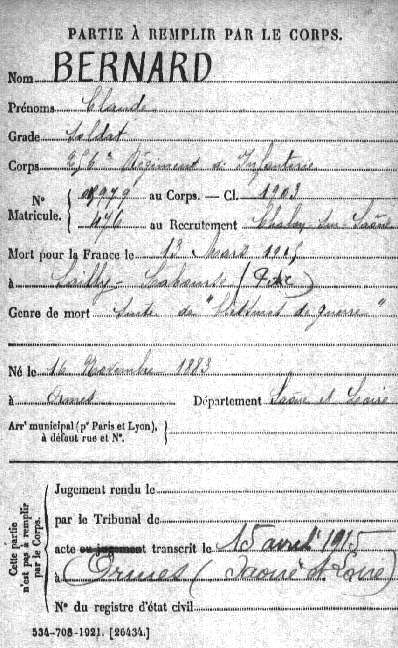 PARTIE À REMPLIR PAR LE CORPS.
Nom BERNARD
Prénoms Claude
Grade Soldat
Corps Régiment d'Infanterie
N° Matricule. 979 au Corps. — Cl. 1903
476 au Recrutement Chalon sur Saône
Mort pour la France le 13 Mars 1915
à Sailly-Labourse (P.d.C)
Genre de mort Suite de "blessures de guerre"
Né le 16 Novembre 1883
à Ormes Département Saône et Loire
Arrt municipal (pr Paris et Lyon),
à défaut rue et N°.
Cette partie n'est pas à remplir par le Corps.
Jugement rendu le
par le Tribunal de
acte ou jugement transcrit le 15 avril 1915
à Ormes (Saône et Loire)
N° du registre d'état civil
534-708-1921. [26434.]